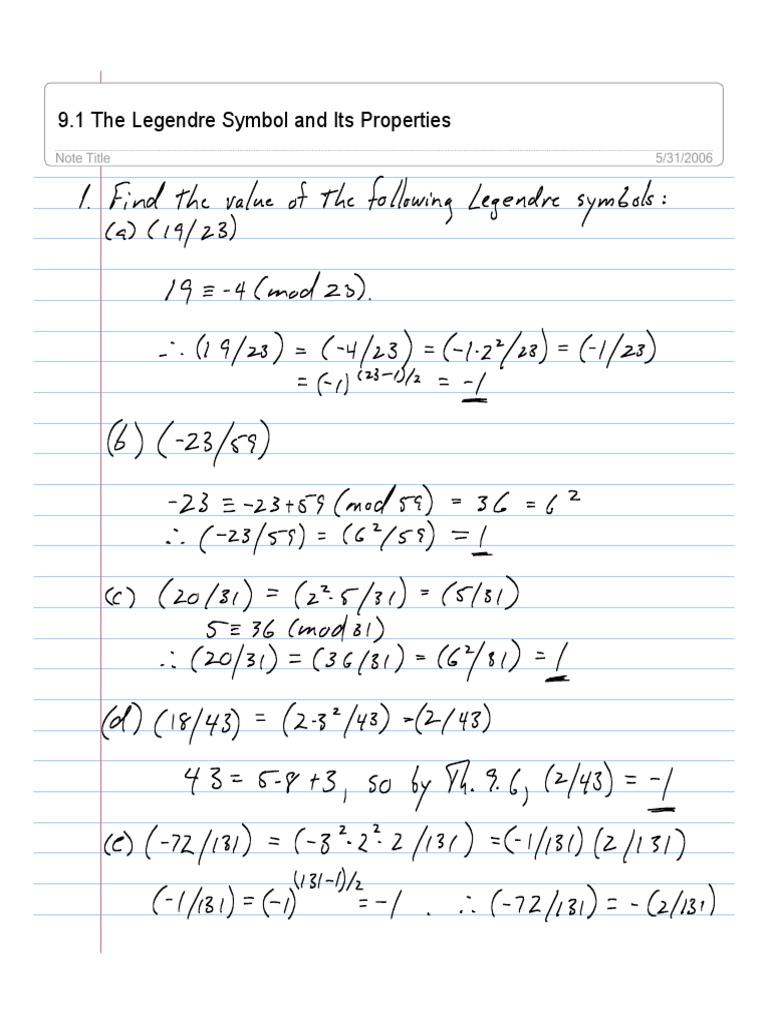 9.1 The Legendre Symbol and Its Properties
Note Title 5/31/2006
1. Find the value of the following Legendre symbols:
(a) (19/23)
19 ≡ -4 (mod 23).
∴ (19/23) = (-4/23) = (-1·2²/23) = (-1/23)
= (-1)^(23-1)/2 = -1
(b) (-23/59)
-23 ≡ -23+59 (mod 59) = 36 = 6²
∴ (-23/59) = (6²/59) = 1
(c) (20/31) = (2²·5/31) = (5/31)
5 ≡ 36 (mod 31)
∴ (20/31) = (36/31) = (6²/31) = 1
(d) (18/43) = (2·3²/43) = (2/43)
43 = 5·8 + 3, so by Th. 9.6, (2/43) = -1
(e) (-72/131) = (-3²·2²·2/131) = (-1/131)(2/131)
(-1/131) = (-1)^(131-1)/2 = -1. ∴ (-72/131) = -(2/131)